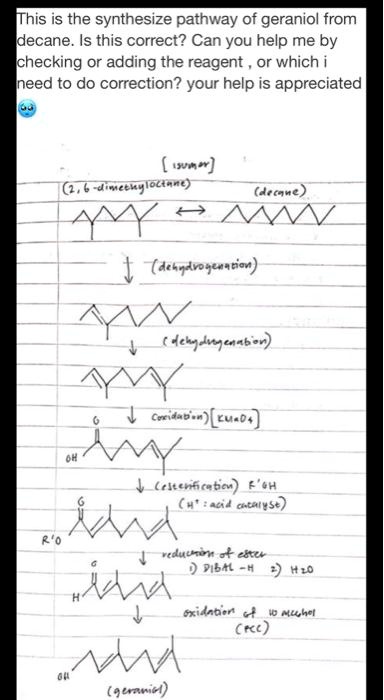 This is the synthesize pathway of geraniol from
decane. Is this correct? Can you help me by
checking or adding the reagent , or which i
need to do correction? your help is appreciated
[isumer]
(2,6-dimethyloctane)
(decane)
(dehydrogenation)
(dehydrogenation)
(oxidation) [KMnO4]
O
OH
(esterification) R'OH
(H+ : acid catalyst)
O
R'O
reduction of ester
1) DIBAL-H 2) H2O
O
H
oxidation of to alcohol
(PCC)
OH
(geraniol)